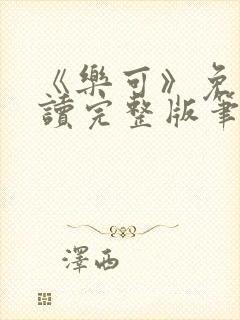 《樂可》免
讀完整版筆
澤西